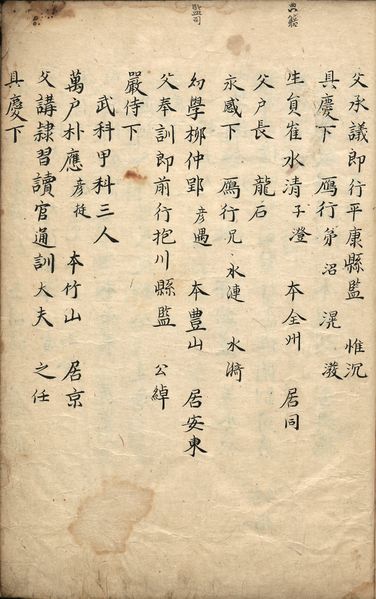 父承議郎行平康縣監 惟沉
具慶下 鴈行弟沼 混 濬
生負崔水清子澄 本全州 居同
父戶長 龍石
永感下 鴈行兄水漣 水漪
幼學柳仲郢彦遇 本豊山 居安東
父奉訓郎前行抱川縣監 公綽
嚴侍下
武科甲科三人
萬戶朴應 本竹山 居京
父講隷習讀官通訓大夫 之任
具慶下